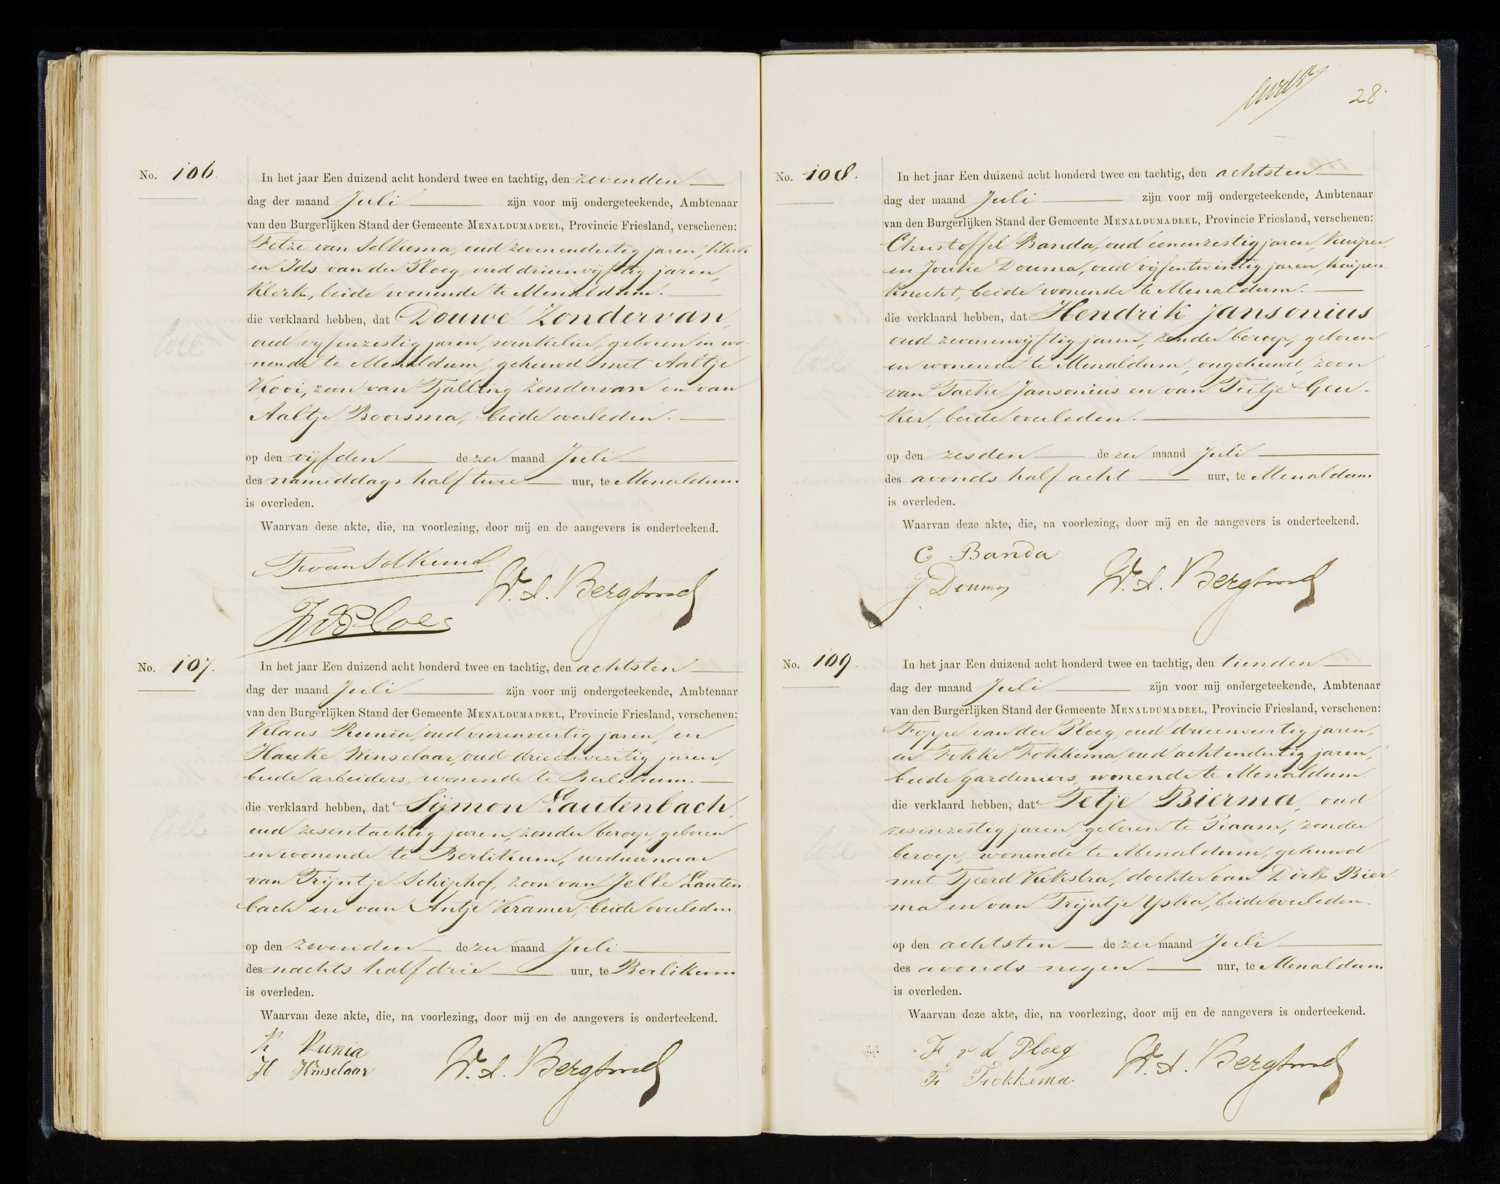 No. 106.
In het jaar Een duizend acht honderd twee en tachtig, den zevenden
dag der maand Juli zijn voor mij ondergeteekende, Ambtenaar
van den Burgerlijken Stand der Gemeente MENALDUMADEEL, Provincie Friesland, verschenen:
van Selkema, oud zevenendertig jaren, klerk
en Ids van der Ploeg, oud drieenvijftig jaren,
klerk, beide wonende te Menaldum.
die verklaard hebben, dat Douwe Zondervan,
oud vijfenzestig jaren, winkelier, geboren en wo-
nende te Menaldum, gehuwd met Aaltje
Kooi, zoon van Tjalling Zondervan en van
Aaltje Boorsma, beide overleden.
op den vijfden dezer maand Juli
des namiddags half twee uur, te Menaldum
is overleden.
Waarvan deze akte, die, na voorlezing, door mij en de aangevers is onderteekend.
van Selkema
vd Ploeg
No. 107.
In het jaar Een duizend acht honderd twee en tachtig, den achtsten
dag der maand Juli zijn voor mij ondergeteekende, Ambtenaar
van den Burgerlijken Stand der Gemeente MENALDUMADEEL, Provincie Friesland, verschenen:
Klaas Runia, oud vierenveertig jaren, en
Hauke Winselaar, oud drieenveertig jaren,
beide arbeiders, wonende te Berlikum.
die verklaard hebben, dat Sijmon Lautenbach,
oud zesentachtig jaren, zonder beroep, geboren
en wonende te Berlikum, weduwnaar
van Trijntje Schiphof, zoon van Jelle Lauten
bach en van Antje Kramer, beide overleden.
op den zevenden dezer maand Juli
des nachts half drie uur, te Berlikum
is overleden.
Waarvan deze akte, die, na voorlezing, door mij en de aangevers is onderteekend.
K Runia
H Winselaar
28.
No. 108.
In het jaar Een duizend acht honderd twee en tachtig, den achtsten
dag der maand Juli zijn voor mij ondergeteekende, Ambtenaar
van den Burgerlijken Stand der Gemeente MENALDUMADEEL, Provincie Friesland, verschenen:
Christoffel Banda, oud eenenzestig jaren, kuiper
en Jouke Douma, oud vijfentwintig jaren, kuipers
knecht, beide wonende te Menaldum.
die verklaard hebben, dat Hendrik Jansonius
oud zevenenvijftig jaren, zonder beroep, geboren
en wonende te Menaldum, ongehuwd, zoon
van Jansonius en van Trijtje Geu-
ker, beide overleden.
op den zesden dezer maand Juli
des avonds half acht uur, te Menaldum
is overleden.
Waarvan deze akte, die, na voorlezing, door mij en de aangevers is onderteekend.
C Banda
J Douma
No. 109
In het jaar Een duizend acht honderd twee en tachtig, den tienden
dag der maand Juli zijn voor mij ondergeteekende, Ambtenaar
van den Burgerlijken Stand der Gemeente MENALDUMADEEL, Provincie Friesland, verschenen:
Foppe van der Ploeg, oud drieenveertig jaren,
en Fekke Fokkema, oud achtendertig jaren,
beide gardeniers, wonende te Menaldum
die verklaard hebben, dat Tetje Bierma, oud
zesenzestig jaren, geboren te Piaam, zonder
beroep, wonende te Menaldum, gehuwd
met Tjeerd Kuikstra, dochter van Dirk Bier
ma en van Trijntje Ypka, beide overleden.
op den achtsten dezer maand Juli
des avonds negen uur, te Menaldum
is overleden.
Waarvan deze akte, die, na voorlezing, door mij en de aangevers is onderteekend.
F v d Ploeg
F Fokkema